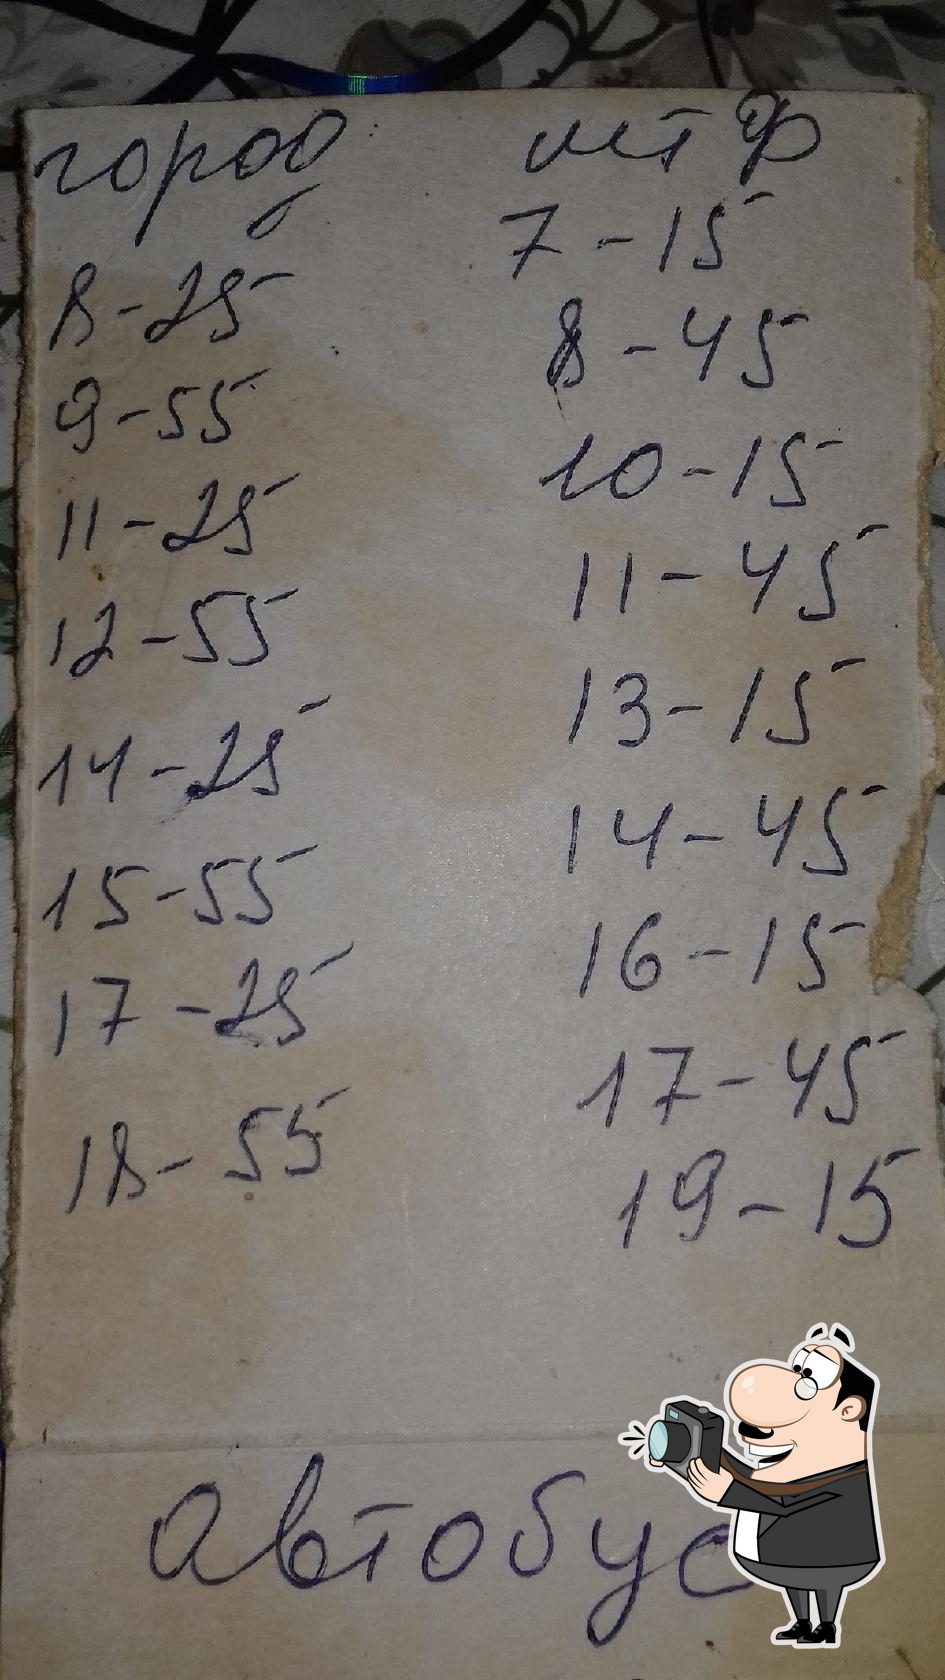 город мтф
7-15
8-25 8-45
9-55 10-15
11-25 11-45
12-55 13-15
14-25 14-45
15-55 16-15
17-25 17-45
18-55 19-15
автобус